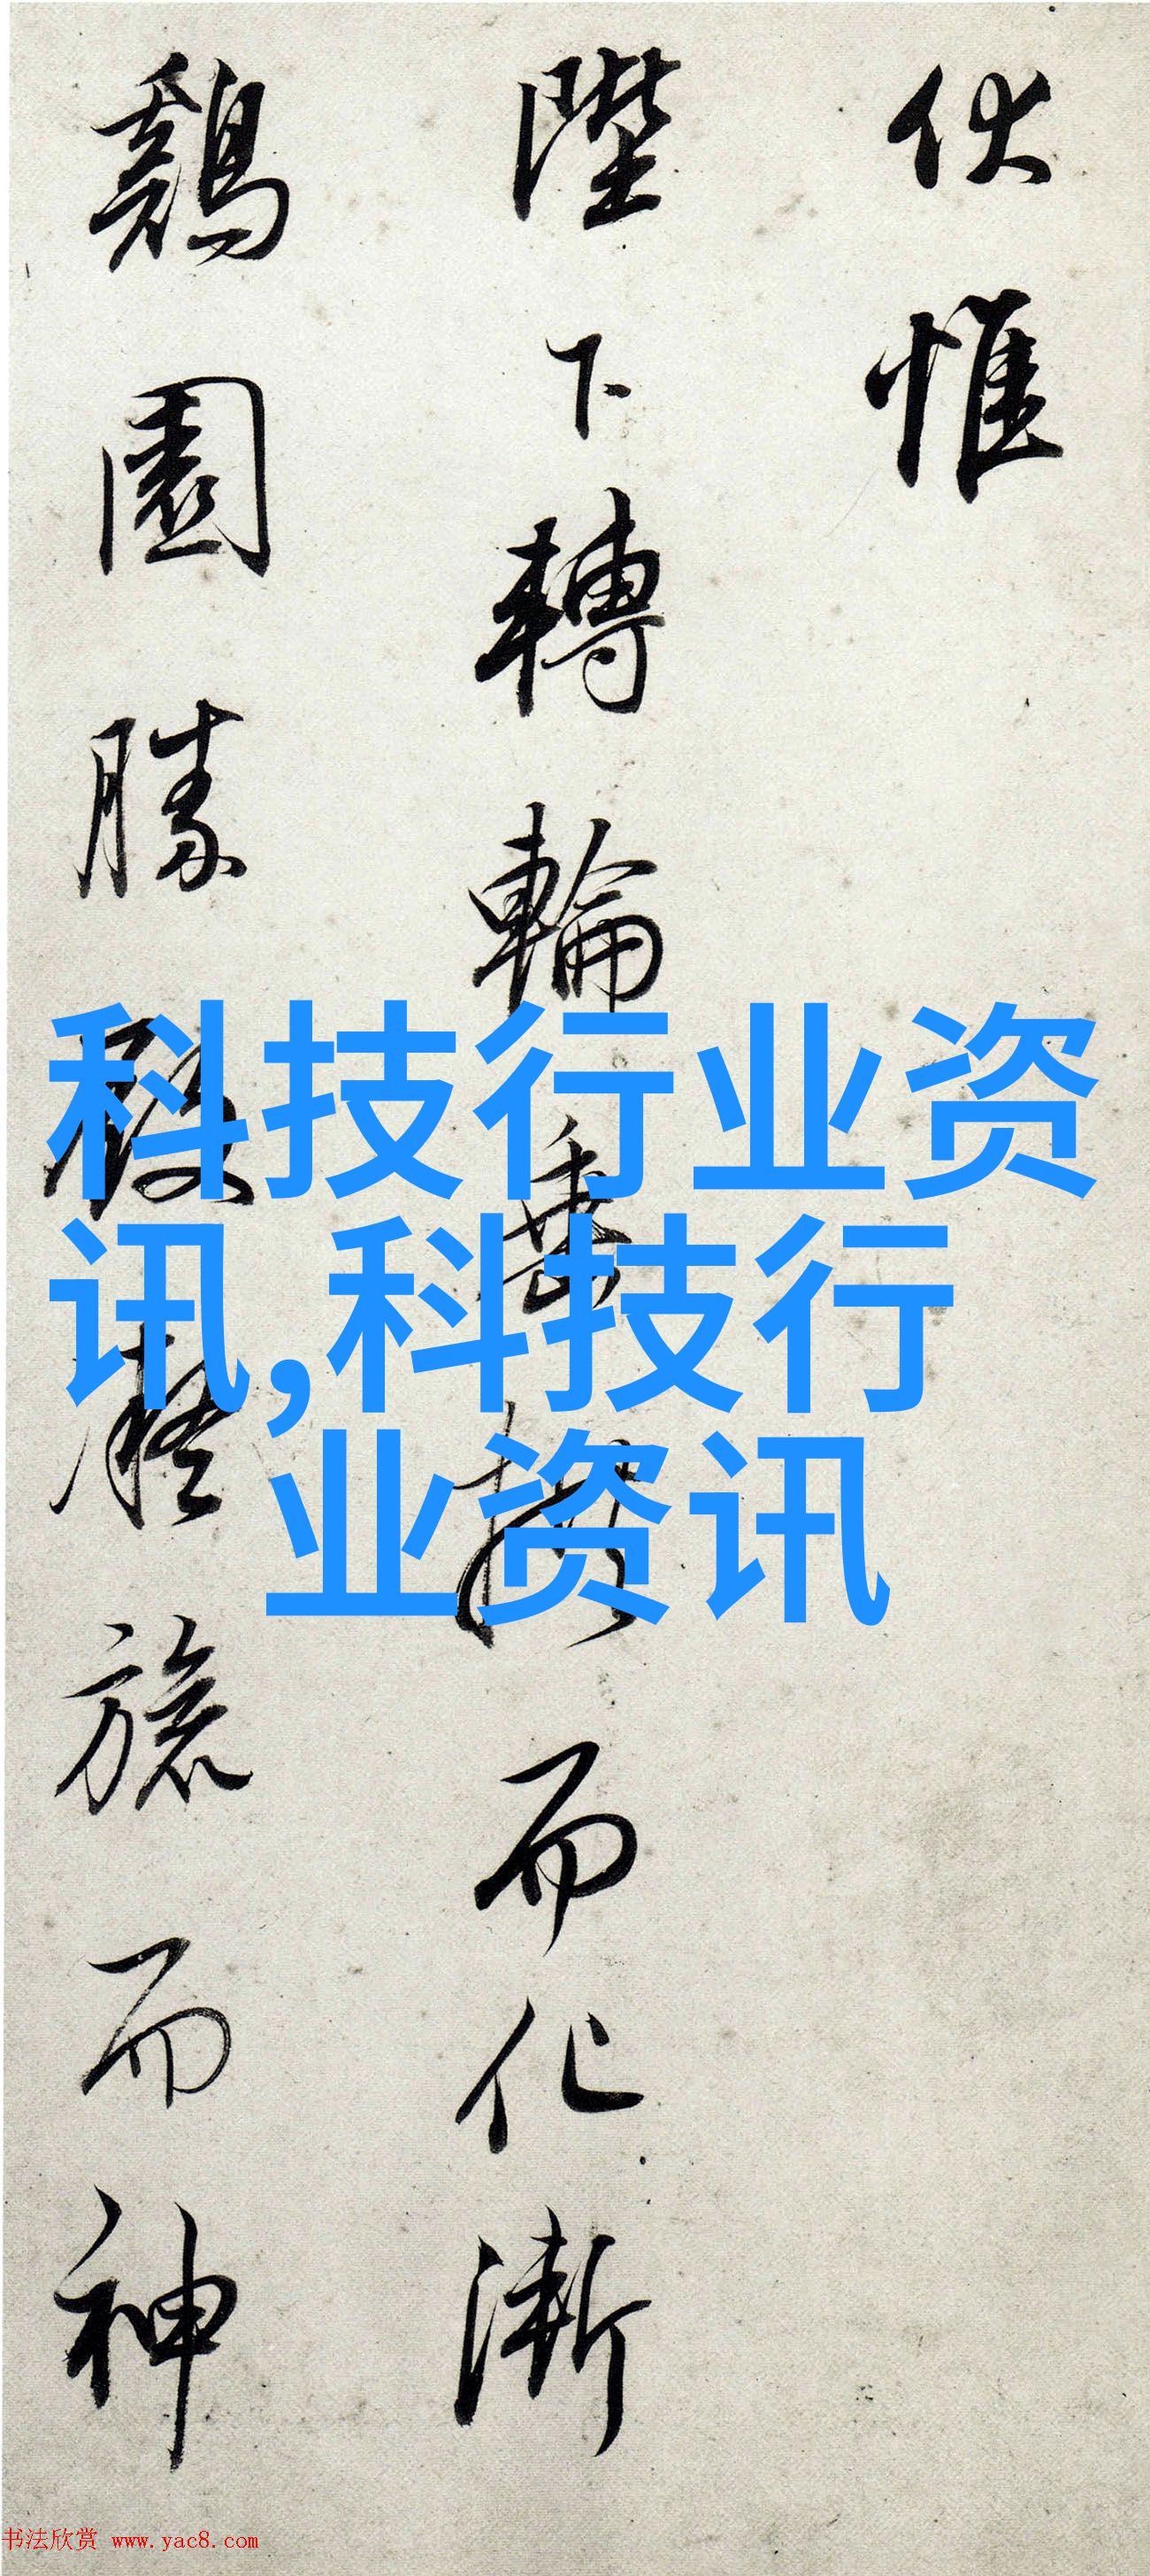 伏惟
陛下轉輪垂拱而化漸
鷄園勝殿凝旒而神
科技行业资
讯,科技行
业资讯
书法欣赏 www.yac8.com